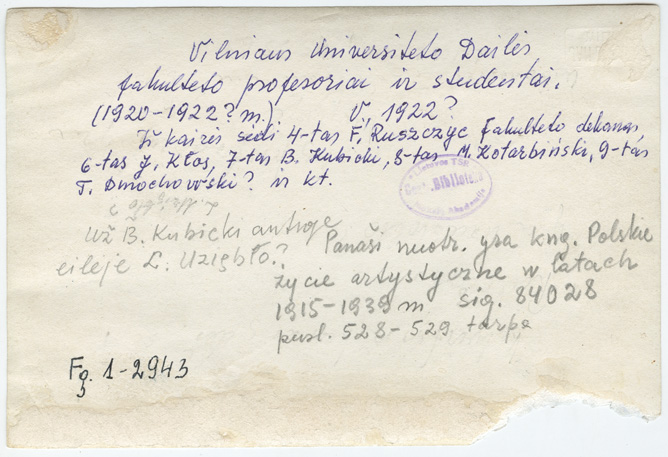 Vilniaus Universiteto Dailės
fakulteto profesoriai ir studentai.
(1920-1922? m.) V., 1922?
Iš kairės sėdi 4-tas F. Ruszczyc fakulteto dekanas,
6-tas J. Kłos, 7-tas B. Kubicki, 8-tas M. Kotarbiński, 9-tas
T. Dmochowski? ir kt.
Lietuvos TSR
Biblioteka
Mokslų Akademija
Už B. Kubicki antroje
eilėje L. Uziębło.?
Panaši nuotr. yra kng. Polskie
życie artystyczne w latach
1915-1939 m sig. 84028
pusl. 528-529 tarpe
Fg. 1-2943
3